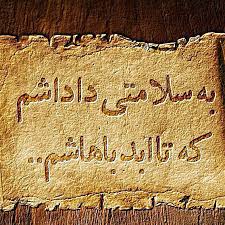 به سلامتی داداشم
که تا ابد باهاشم..